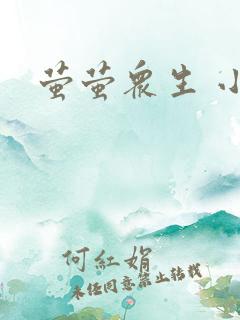 萤萤衆生 小
何紅娟
未经同意禁止转载